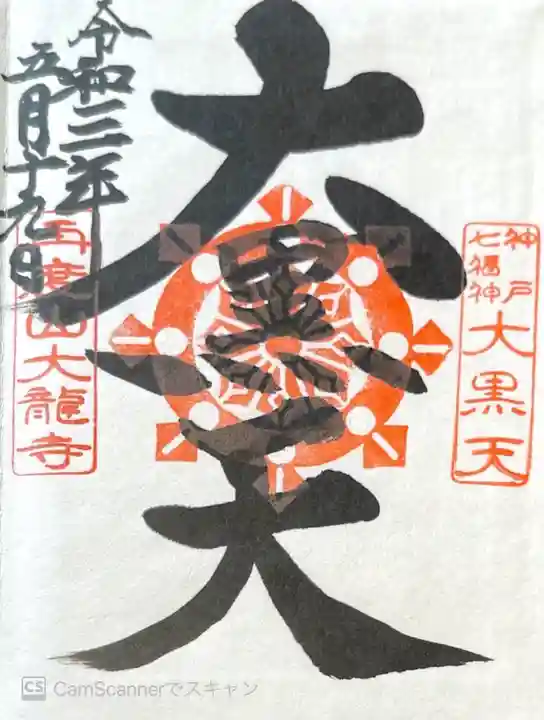 神戸
七福神
大黒天
大黒天
令和三年
五月十九日
再度山大龍寺
CS CamScannerでスキャン